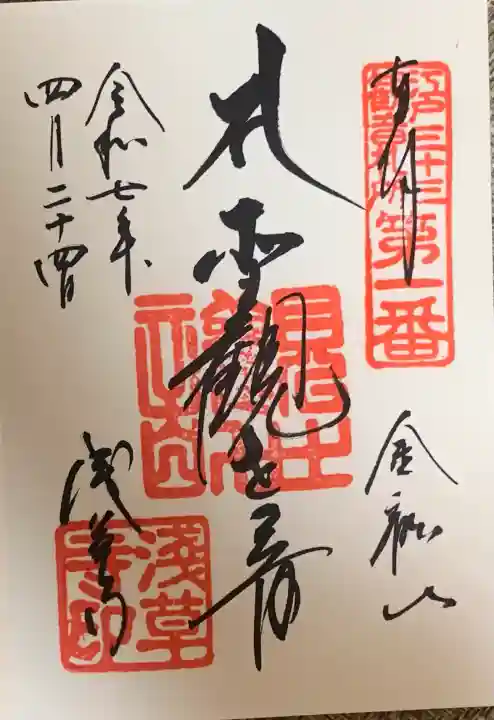 奉拝
江戸三十三
観音札所第一番
金龍山
札所
聖観世音
令和七年
四月二十四日
浅草寺
浅草
寺印